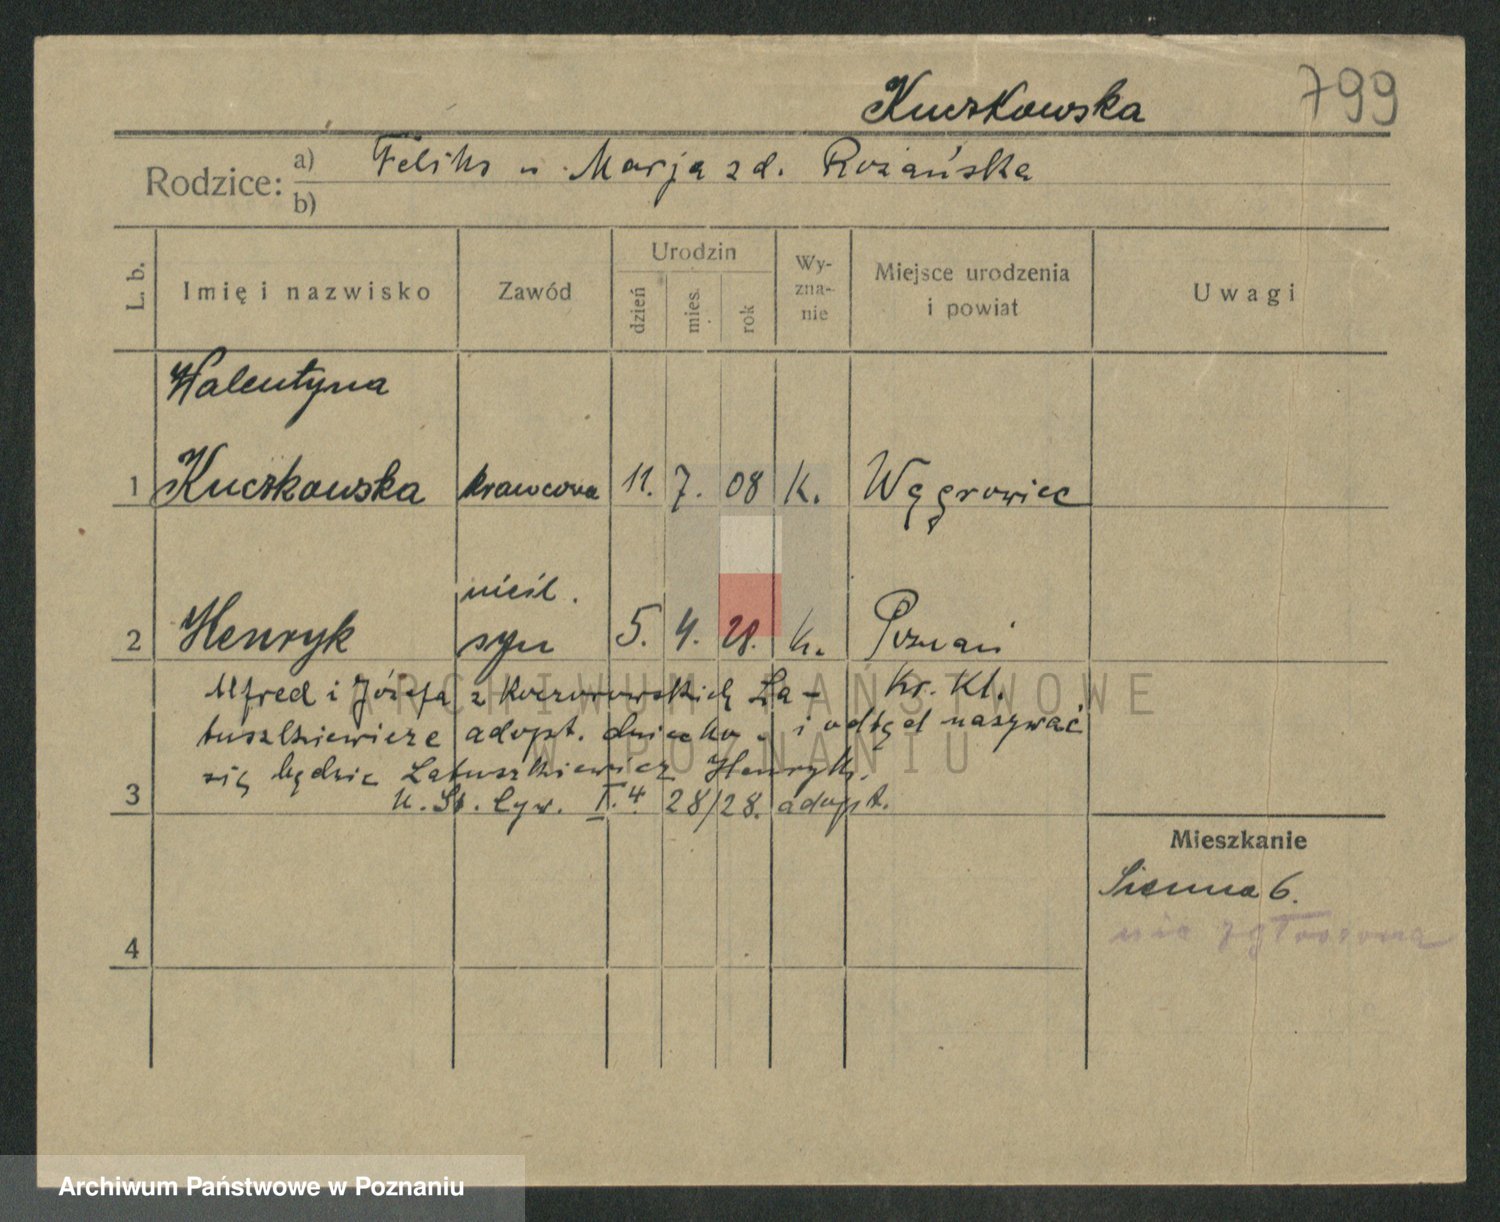 799
Kuczkowska
Rodzice: a) Feliks u. Marja z d. Rożańska
b)
L. b. Imię i nazwisko Zawód Urodzin dzień mies. rok Wy-zna-nie Miejsce urodzenia i powiat Uwagi
Walentyna
1 Kuczkowska krawcowa 11. 7. 08 k. Wągrowiec
nieśl.
2 Henryk syn 5. 4. 28. k. Poznań
Alfred i Józefa z Koczorowskich La- Kr. Kl.
tuszkiewicze adopt. dziecko i odtąd nazywać
się będzie Latuszkiewicz Henryk.
3 4 28/28. adopt.
Mieszkanie
Sienna 6.
nie zgłoszona
4
ARCHIWUM PAŃSTWOWE
W POZNANIU
Archiwum Państwowe w Poznaniu